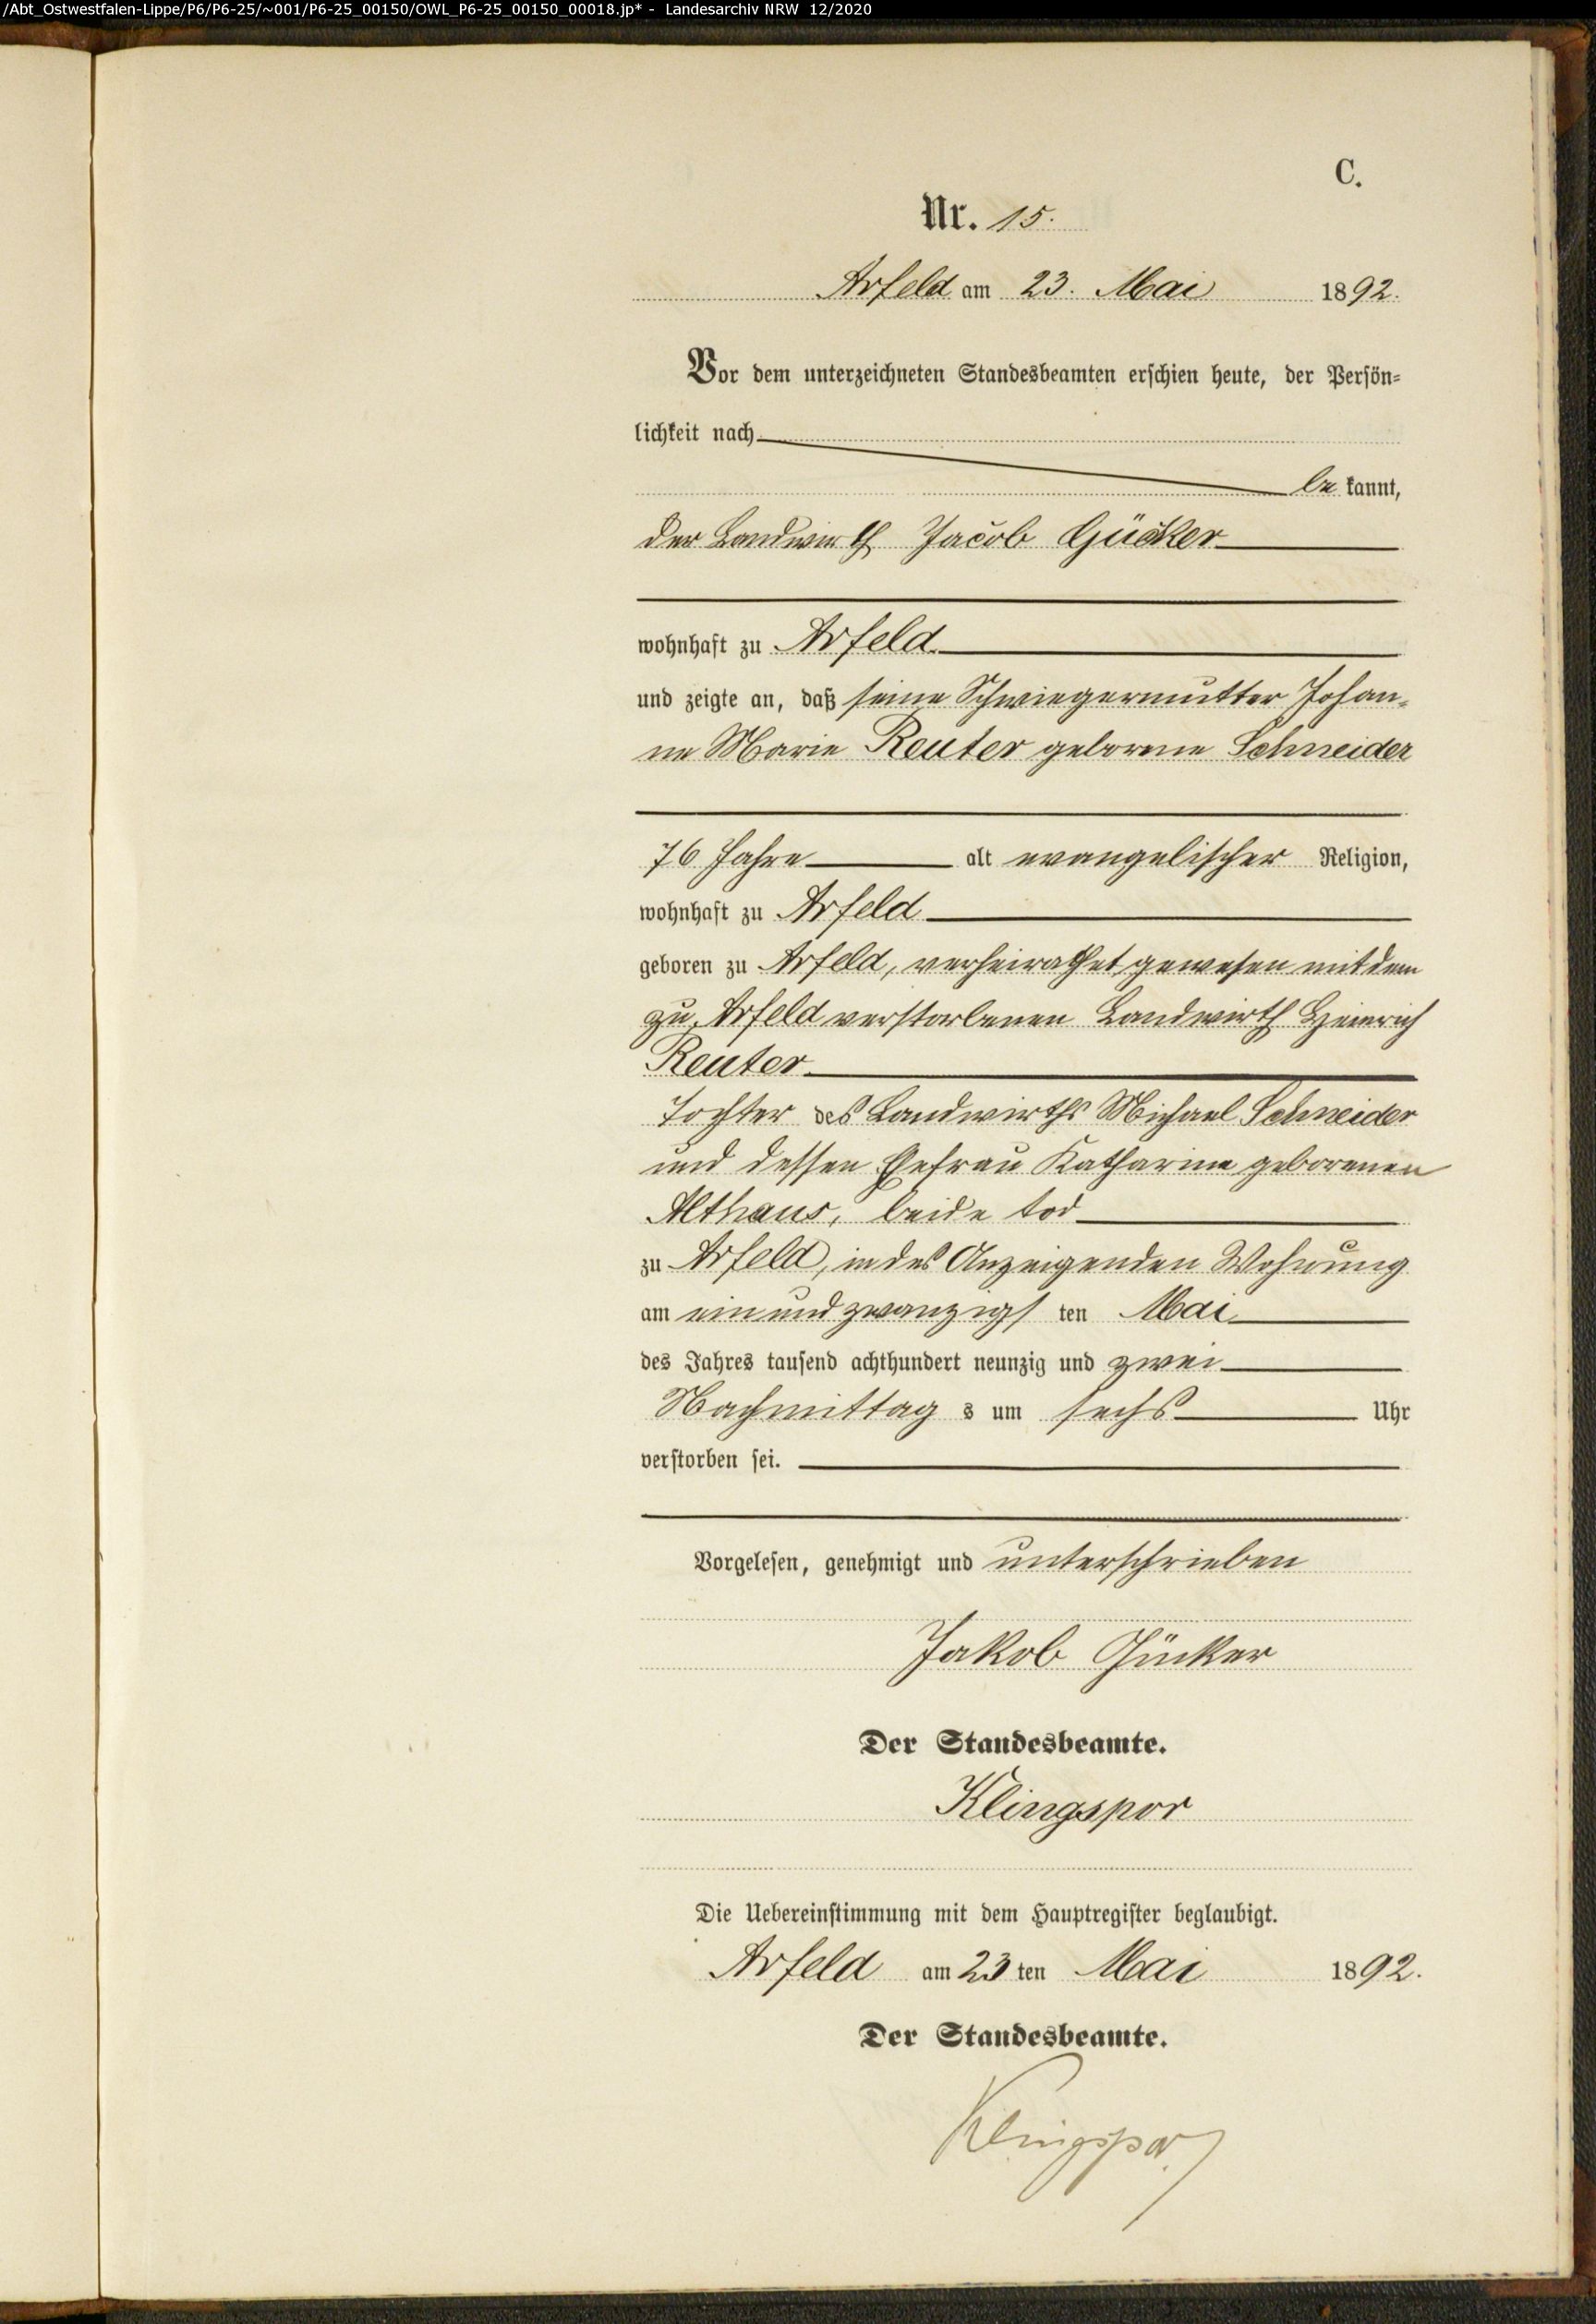 /Abt_Ostwestfalen-Lippe/P6/P6-25/~001/P6-25_00150/OWL_P6-25_00150_00018.jp* - Landesarchiv NRW 12/2020
C.
Nr. 15.
Arfeld am 23. Mai 1892.
Vor dem unterzeichneten Standesbeamten erschien heute, der Persön-
lichkeit nach
be kannt,
der Landwirth Jacob Gücker
wohnhaft zu Arfeld
und zeigte an, daß seine Schwiegermutter Johan-
ne Marie Reuter geborene Schneider
76 Jahre alt evangelischer Religion,
wohnhaft zu Arfeld
geboren zu Arfeld, verheirathet gewesen mit dem
zu Arfeld verstorbenen Landwirth Heinrich
Reuter
Tochter des Landwirths Michael Schneider
und dessen Ehefrau Katharine geborenen
Althaus, beide tod
zu Arfeld, in des Anzeigenden Wohnung
am ein und zwanzigs ten Mai
des Jahres tausend achthundert neunzig und zwei
Nachmittag s um sechs Uhr
verstorben sei.
Vorgelesen, genehmigt und unterschrieben
Jakob Gücker
Der Standesbeamte.
Klingspor
Die Uebereinstimmung mit dem Hauptregister beglaubigt.
Arfeld am 23 ten Mai 1892.
Der Standesbeamte.
Klingspor